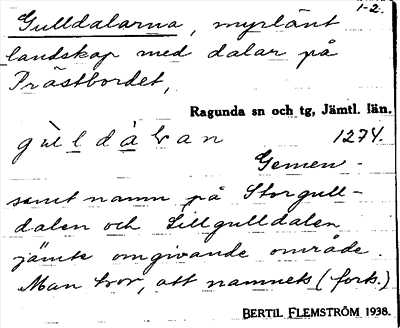 Gulldalarna, myrlänt 1-2.
landskap med dalar på
Prästbordet,
Ragunda sn och tg, Jämtl. län.
gu̇lldȧlran 1274.
Gemen-
samt namn på Storgull-
dalen och Lillgulldalen
jämte omgivande område.
Man tror, att namnets (forts.)
BERTIL FLEMSTRÖM 1938.